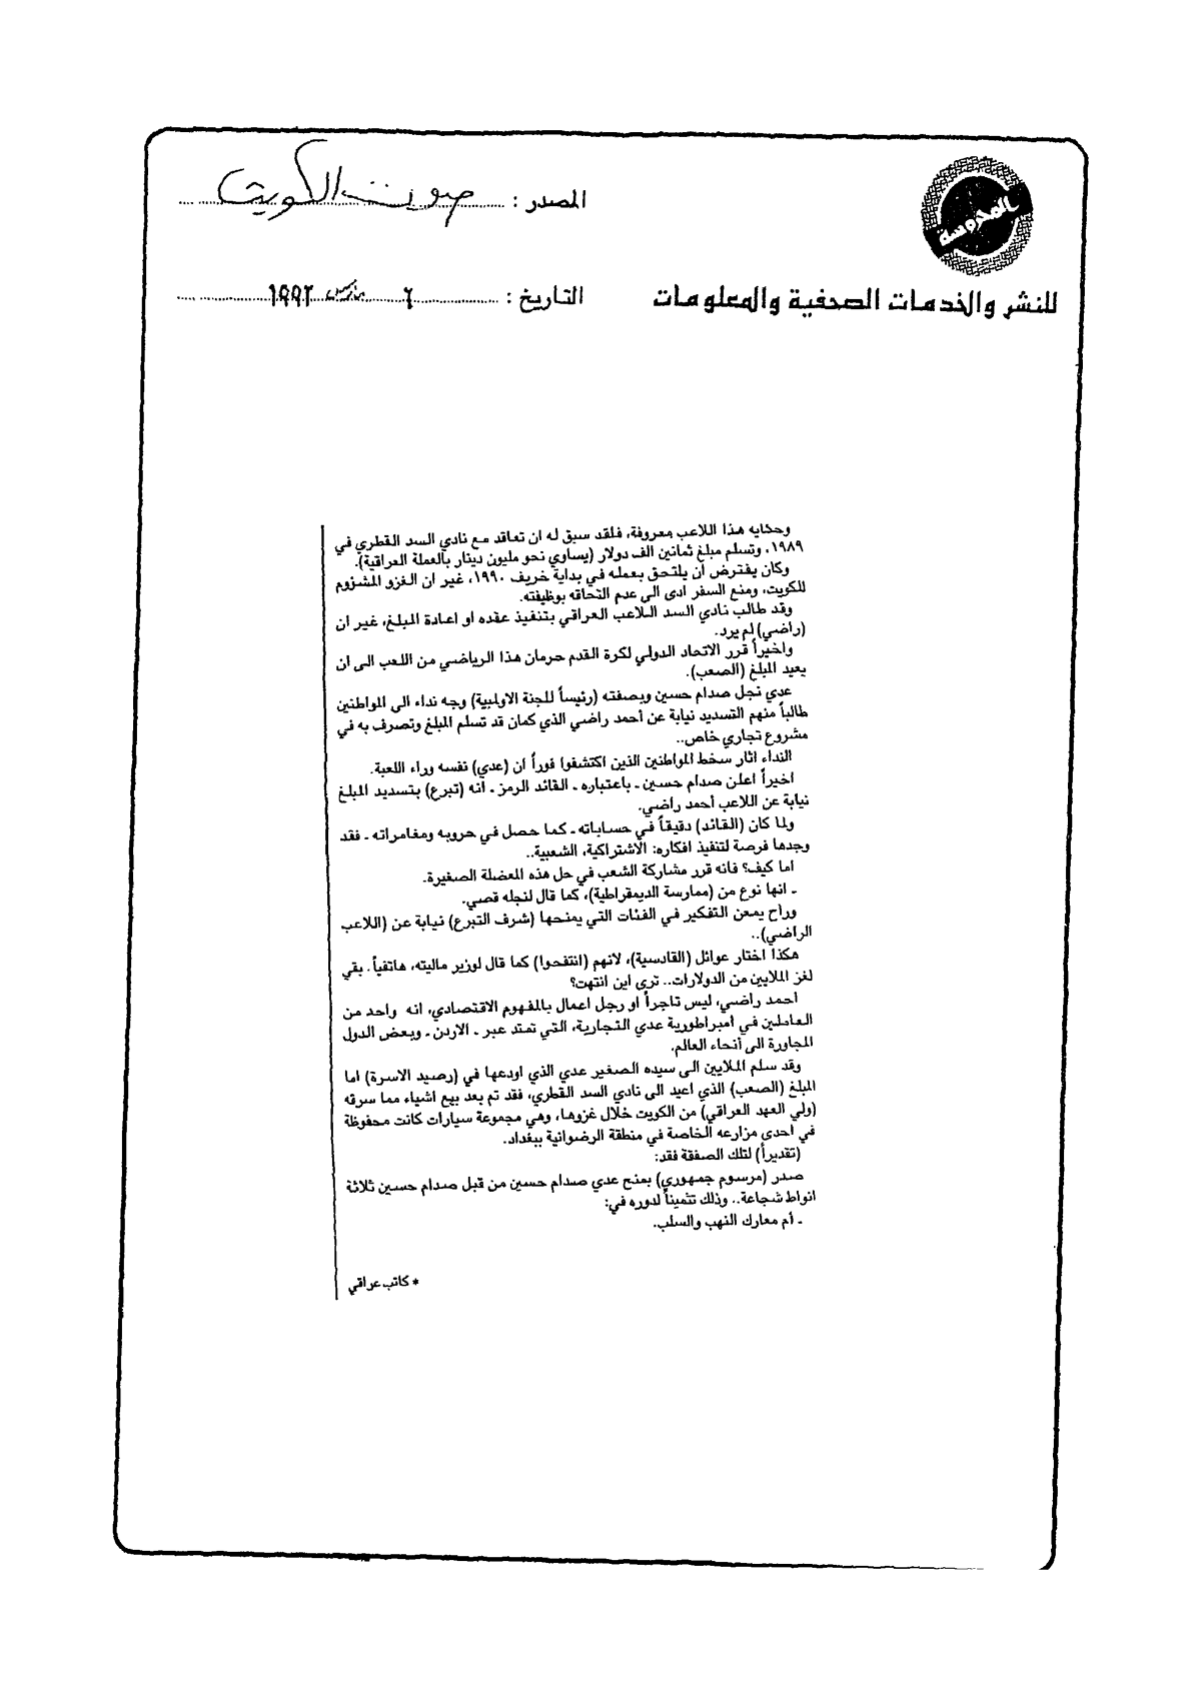 المصدر : صوت الكويت
المحروسة
للنشر والخدمات الصحفية والمعلومات
التاريخ : ٦ مارس ١٩٩٢
وحكايه هذا اللاعب معروفة، فلقد سبق له ان تعاقد مع نادي السد القطري في
١٩٨٩، وتسلم مبلغ ثمانين الف دولار (يساوي نحو مليون دينار بالعملة العراقية).
وكان يفترض ان يلتحق بعمله في بداية خريف ١٩٩٠، غير ان الغزو المشؤوم
للكويت، ومنع السفر ادى الى عدم التحاقه بوظيفته.
وقد طالب نادي السد اللاعب العراقي بتنفيذ عقده او اعادة المبلغ، غير ان
(راضي) لم يرد.
واخيراً قرر الاتحاد الدولي لكرة القدم حرمان هذا الرياضي من اللعب الى ان
يعيد المبلغ (الصعب).
عدي نجل صدام حسين وبصفته (رئيساً للجنة الاولمبية) وجه نداء الى المواطنين
طالباً منهم التسديد نيابة عن أحمد راضي الذي كمان قد تسلم المبلغ وتصرف به في
مشروع تجاري خاص..
النداء اثار سخط المواطنين الذين اكتشفوا فوراً ان (عدي) نفسه وراء اللعبة.
اخيراً اعلن صدام حسين ـ باعتباره ـ القائد الرمز ـ انه (تبرع) بتسديد المبلغ
نيابة عن اللاعب أحمد راضي.
ولما كان (القائد) دقيقاً في حساباته ـ كما حصل في حروبه ومغامراته ـ فقد
وجدها فرصة لتنفيذ افكاره: الاشتراكية، الشعبية..
اما كيف؟ فانه قرر مشاركة الشعب في حل هذه المعضلة الصغيرة.
ـ انها نوع من (ممارسة الديمقراطية)، كما قال لنجله قصي.
وراح يمعن التفكير في الفئات التي يمنحها (شرف التبرع) نيابة عن (اللاعب
الراضي)..
هكذا اختار عوائل (القادسية)، لانهم (انتفحوا) كما قال لوزير ماليته، هاتفياً. بقي
لغز الملايين من الدولارات.. ترى اين انتهت؟
احمد راضي، ليس تاجراً او رجل اعمال بالمفهوم الاقتصادي، انه واحد من
العاملين في امبراطورية عدي التجارية، التي تمتد عبر ـ الاردن ـ وبعض الدول
المجاورة الى أنحاء العالم.
وقد سلم الملايين الى سيده الصغير عدي الذي اودعها في (رصيد الاسرة) اما
المبلغ (الصعب) الذي اعيد الى نادي السد القطري، فقد تم بعد بيع اشياء مما سرقه
(ولي العهد العراقي) من الكويت خلال غزوها، وهي مجموعة سيارات كانت محفوظة
في احدى مزارعه الخاصة في منطقة الرضوانية ببغداد.
(تقديراً) لتلك الصفقة فقد:
صدر (مرسوم جمهوري) بمنح عدي صدام حسين من قبل صدام حسين ثلاثة
انواط شجاعة.. وذلك تثميناً لدوره في:
ـ أم معارك النهب والسلب.
* كاتب عراقي